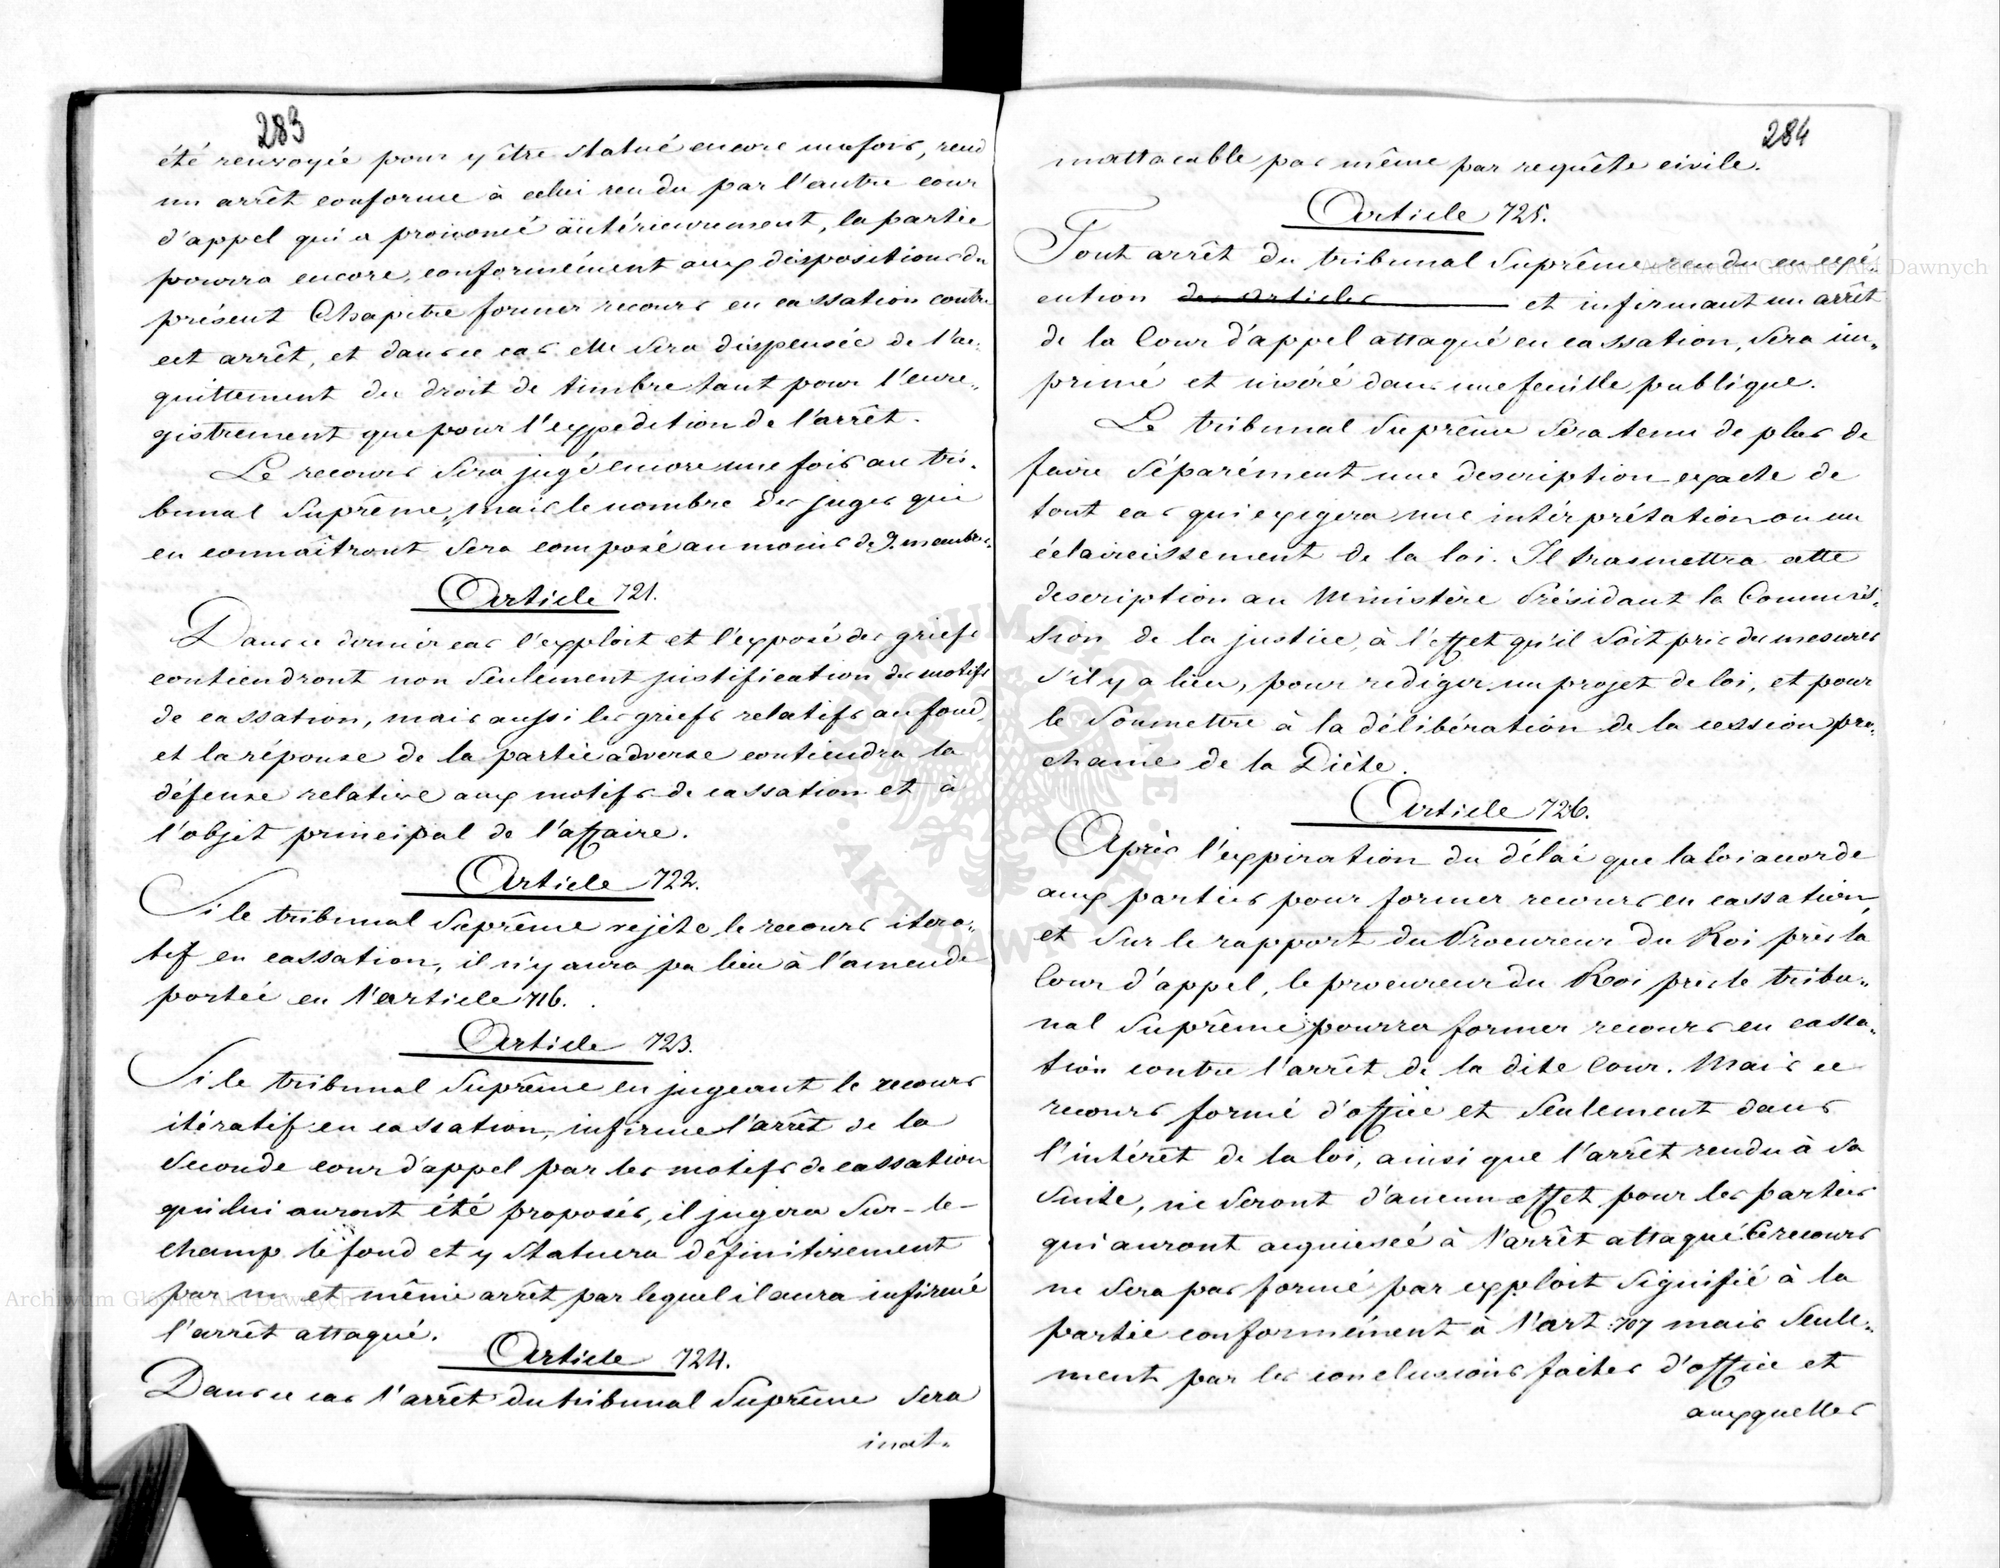 283
été renvoyée pour y être statué encore unefois, rend
un arrêt conforme à celui rendu par l'autre cour
d'appel qui a prononcé antérieurement, la partie
pourra encore, conformément aux dispositions du
présent Chapitre former recours en cassation contre
cet arrêt, et dans ce cas elle sera dispensée de l'ac-
quittement du droit de timbre tant pour l'enre-
gistrement que pour l'expedition de l'arrêt.
Le recours sera jugé encore une fois au tri-
bunal Suprême, mais le nombre des juges qui
en connaîtront sera composé au moins de 9. membres.
Article 721.
Dans ce dernier cas l'exploit et l'exposé des griefs
contiendront non seulement justification des motifs
de cassation, mais aussi les griefs relatifs au fond,
et la réponse de la partie adverse contiendra la
défense relative aux motifs de cassation et à
l'objet principal de l'affaire.
Article 722.
Si le tribunal Suprême rejète le recours itera-
tif en cassation, il n'y aura pa lieu à l'amende
portée en l'article 716.
Article 723.
Si le tribunal Suprême en jugeant le recours
itératif en cassation, infirme l'arrêt de la
Seconde cour d'appel par les motifs de cassation
qui lui auront été proposés, il jugera sur-le-
champ le fond et y statuera définitivement
par un et même arrêt par lequel il aura infirmé
l'arrêt attaqué.
Article 724.
Dans ce cas l'arrêt du tribunal Suprême sera
inat-
284
inattacable pas même par requête civile.
Article 725.
Tout arrêt du tribunal Suprême rendu en exé-
cution des articles et infirmant un arrêt
de la Cour d'appel attaqué en cassation, sera im-
primé et inséré dans une feuille publique.
Le tribunal Suprême sera tenu de plus de
faire séparément une description exacte de
tout cas qui exigera une intérprétation ou un
éclaircissement de la loi. Il trasmettra cette
description au Ministère Présidant la Commis-
sion de la justice, à l'effet qu'il soit pris des mesures
s'il y a lieu, pour rediger un projet de loi, et pour
le soumettre à la délibération de la cession pro-
chaine de la Diète.
Article 726.
Après l'expiration du délai que la loi accorde
aux parties pour former recours en cassation,
et sur le rapport du Procureur du Roi près la
Cour d'appel, le procureur du Roi près le tribu-
nal Suprême pourra former recours en cassa-
tion contre l'arrêt de la dite Cour. Mais ce
recours formé d'office et seulement dans
l'intérêt de la loi, ainsi que l'arrêt rendu à sa
suite, ne seront d'aucun effet pour les parties
qui auront acquiescé à l'arrêt attaqué. Ce recours
ne sera pas formé par exploit signifié à la
partie conformément à l'art: 707 mais seule-
ment par les conclusions faites d'office et
auxquelles
Archiwum Główne Akt Dawnych
Archiwum Główne Akt Dawnych
ARCHIWUM GŁÓWNE AKT DAWNYCH